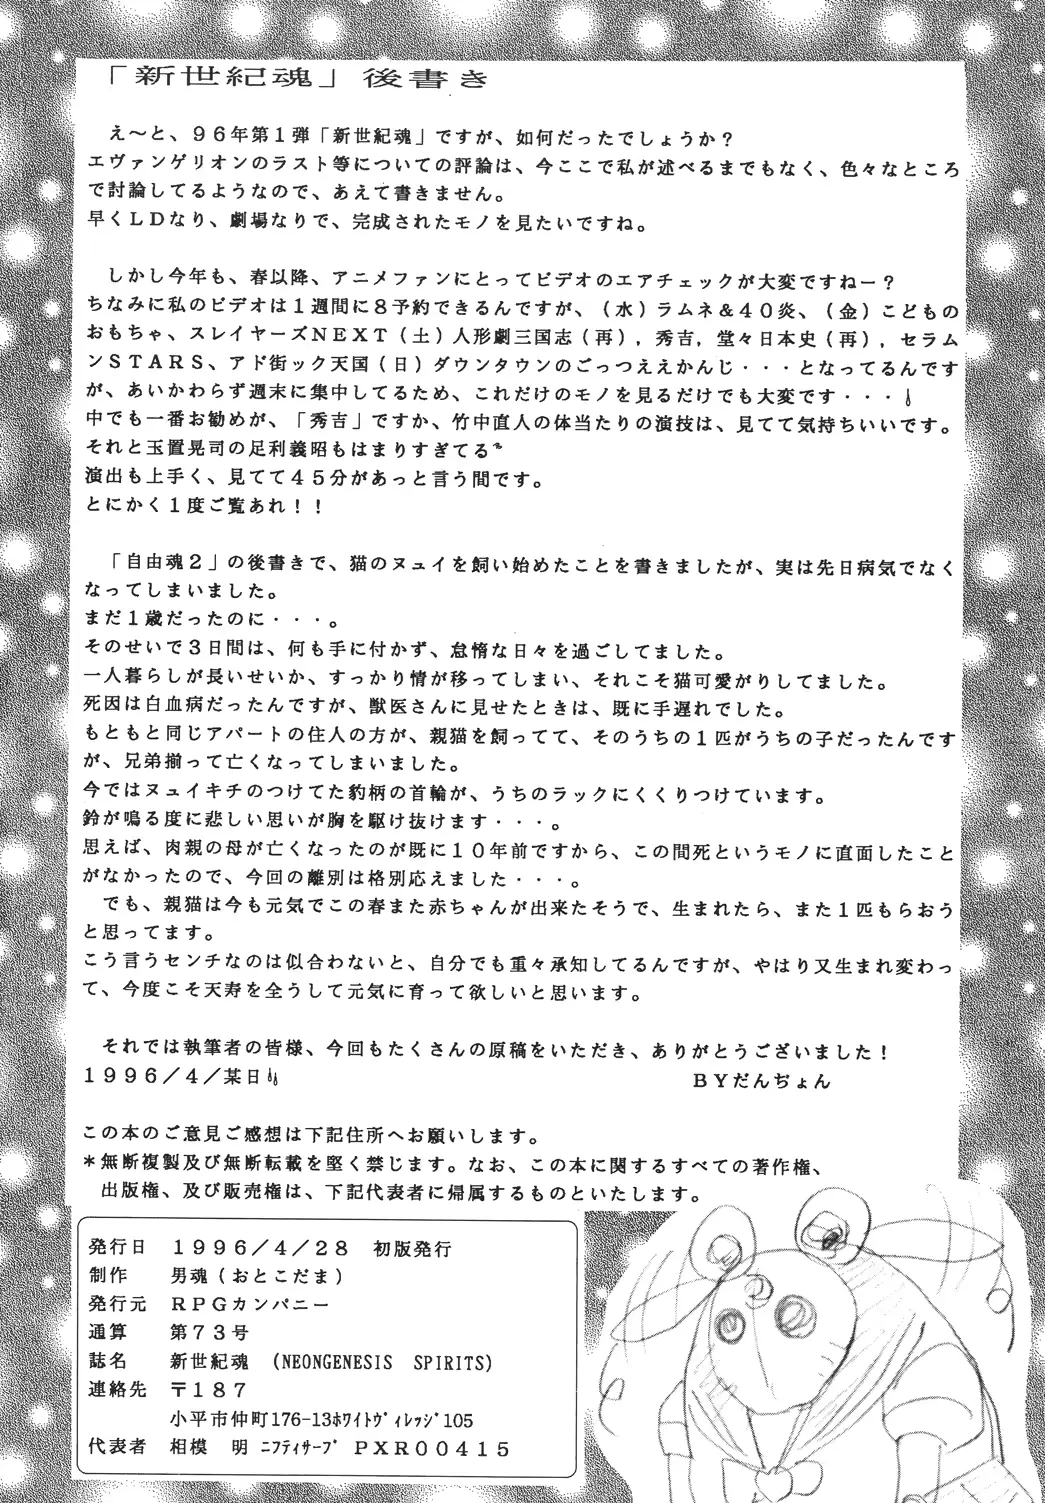 「新世紀魂」後書き
え～と、９６年第１弾「新世紀魂」ですが、如何だったでしょうか？
エヴァンゲリオンのラスト等についての評論は、今ここで私が述べるまでもなく、色々なところ
で討論してるようなので、あえて書きません。
早くＬＤなり、劇場なりで、完成されたモノを見たいですね。
しかし今年も、春以降、アニメファンにとってビデオのエアチェックが大変ですねー？
ちなみに私のビデオは１週間に８予約できるんですが、（水）ラムネ＆４０炎、（金）こどもの
おもちゃ、スレイヤーズＮＥＸＴ（土）人形劇三国志（再），秀吉，堂々日本史（再），セラム
ンＳＴＡＲＳ、アド街ック天国（日）ダウンタウンのごっつええかんじ・・・となってるんです
が、あいかわらず週末に集中してるため、これだけのモノを見るだけでも大変です・・・
中でも一番お勧めが、「秀吉」ですか、竹中直人の体当たりの演技は、見てて気持ちいいです。
それと玉置晃司の足利義昭もはまりすぎてる
演出も上手く、見てて４５分があっと言う間です。
とにかく１度ご覧あれ！！
「自由魂２」の後書きで、猫のヌュイを飼い始めたことを書きましたが、実は先日病気でなく
なってしまいました。
まだ１歳だったのに・・・。
そのせいで３日間は、何も手に付かず、怠惰な日々を過ごしてました。
一人暮らしが長いせいか、すっかり情が移ってしまい、それこそ猫可愛がりしてました。
死因は白血病だったんですが、獣医さんに見せたときは、既に手遅れでした。
もともと同じアパートの住人の方が、親猫を飼ってて、そのうちの１匹がうちの子だったんです
が、兄弟揃って亡くなってしまいました。
今ではヌュイキチのつけてた豹柄の首輪が、うちのラックにくくりつけています。
鈴が鳴る度に悲しい思いが胸を駆け抜けます・・・。
思えば、肉親の母が亡くなったのが既に１０年前ですから、この間死というモノに直面したこと
がなかったので、今回の離別は格別応えました・・・。
でも、親猫は今も元気でこの春また赤ちゃんが出来たそうで、生まれたら、また１匹もらおう
と思ってます。
こう言うセンチなのは似合わないと、自分でも重々承知してるんですが、やはり又生まれ変わっ
て、今度こそ天寿を全うして元気に育って欲しいと思います。
それでは執筆者の皆様、今回もたくさんの原稿をいただき、ありがとうございました！
１９９６／４／某日　ＢＹだんぢょん
この本のご意見ご感想は下記住所へお願いします。
＊無断複製及び無断転載を堅く禁じます。なお、この本に関するすべての著作権、
出版権、及び販売権は、下記代表者に帰属するものといたします。
発行日　１９９６／４／２８　初版発行
制作　男魂（おとこだま）
発行元　ＲＰＧカンパニー
通算　第７３号
誌名　新世紀魂　(NEONGENESIS SPIRITS)
連絡先　〒１８７
小平市仲町176-13ﾎﾜｲﾄｳﾞｨﾚｯｼﾞ105
代表者　相模　明　ﾆﾌﾃｨｻｰﾌﾞ　ＰＸＲ００４１５